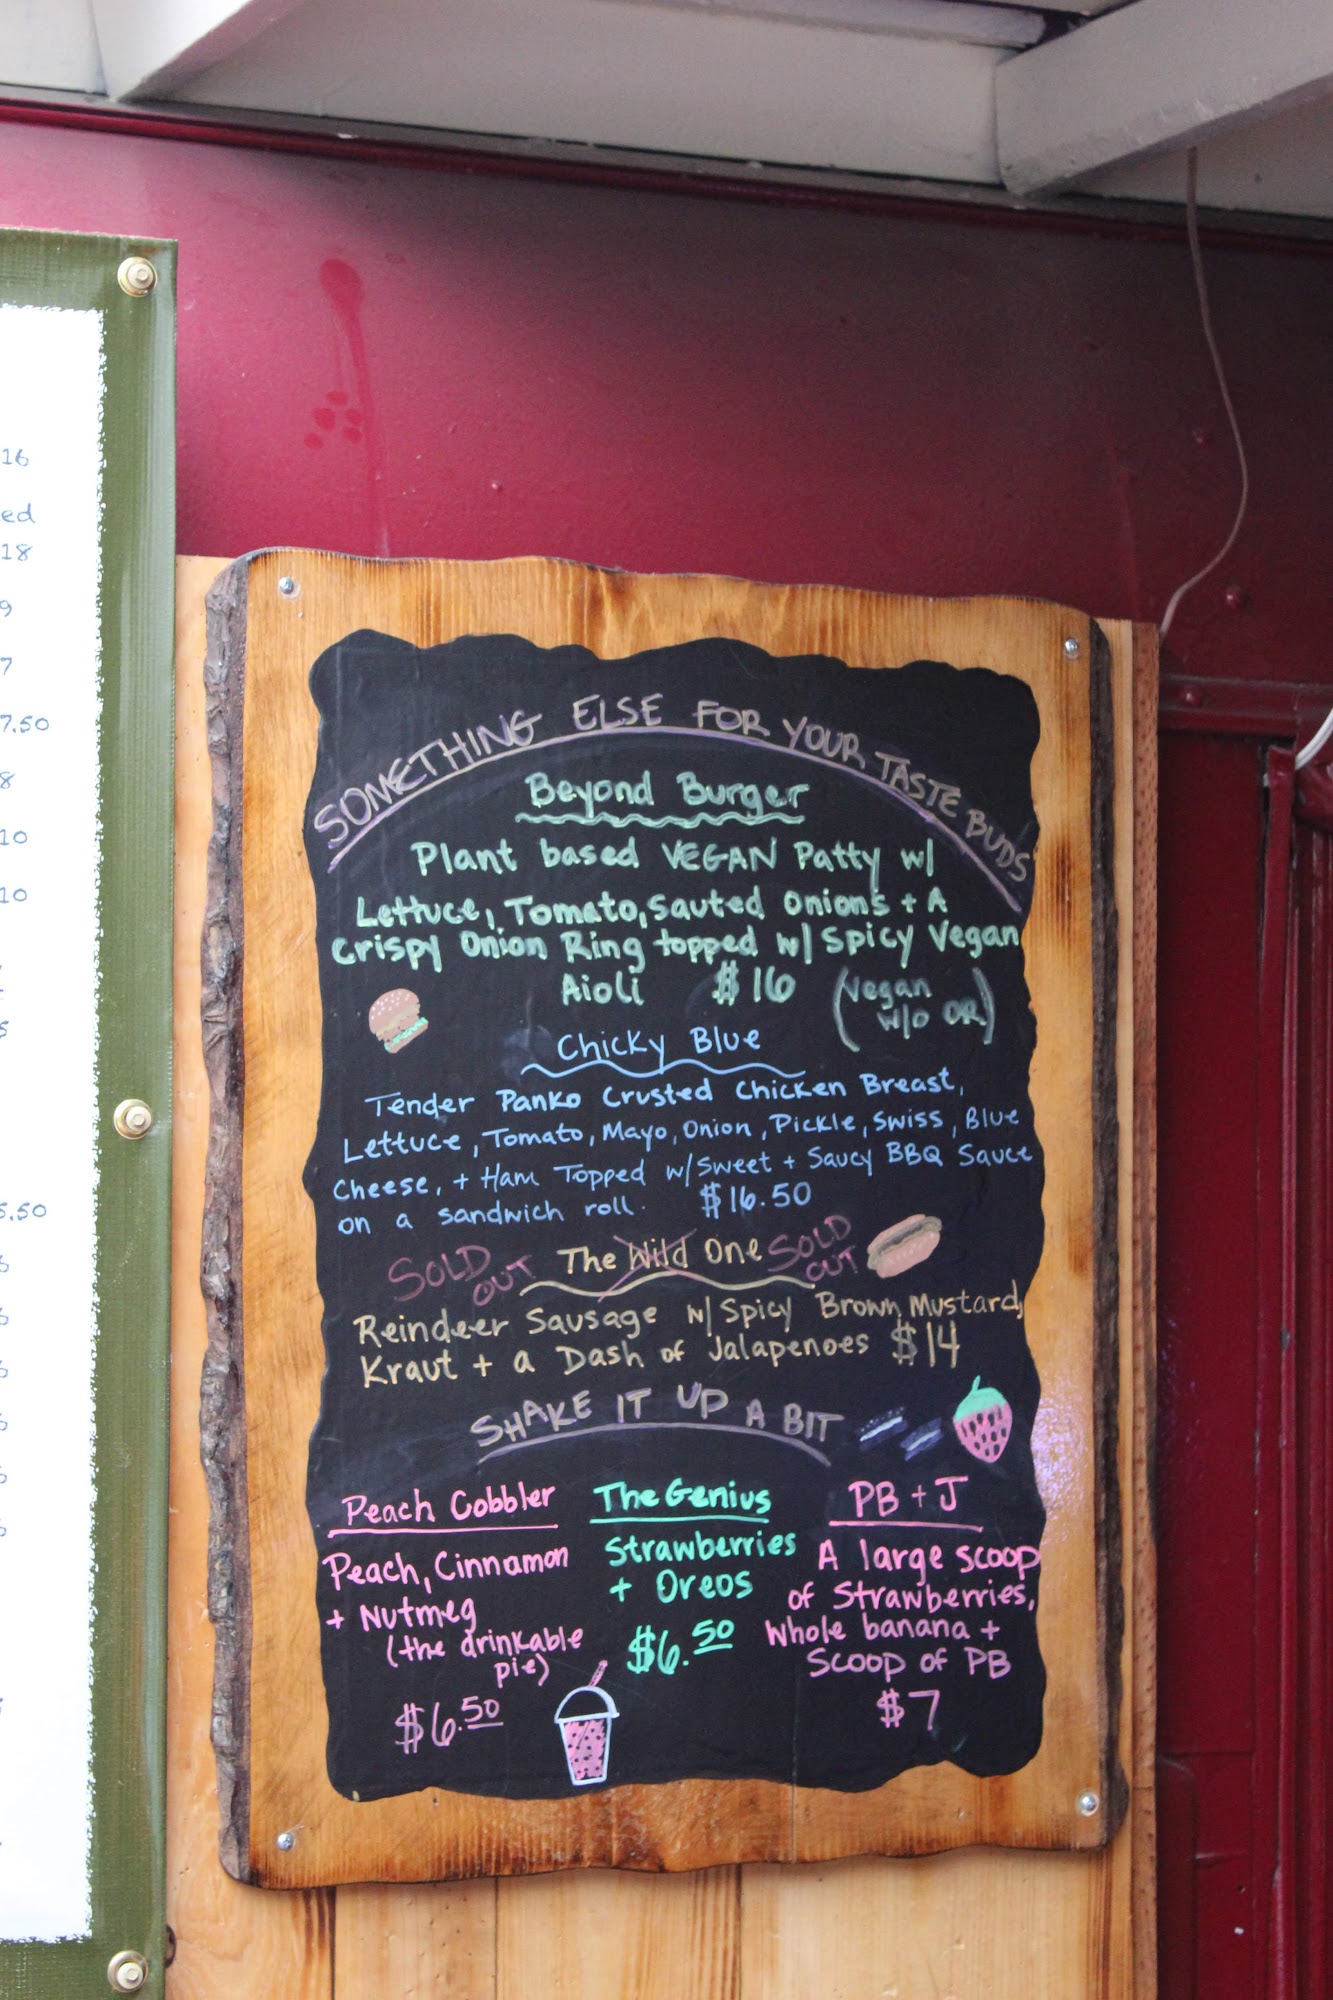 16
ed
18
9
7
7.50
8
10
10
5
5.50
6
6
6
6
6
6
SOMETHING ELSE FOR YOUR TASTE BUDS
Beyond Burger
Plant based VEGAN Patty w/
Lettuce, Tomato, Sauted Onions + A
Crispy Onion Ring topped w/ Spicy Vegan
Aioli $16 (Vegan
w/o OR)
Chicky Blue
Tender Panko Crusted Chicken Breast,
Lettuce, Tomato, Mayo, Onion, Pickle, Swiss, Blue
Cheese, + Ham Topped w/ Sweet + Saucy BBQ Sauce
on a sandwich roll. $16.50
SOLD OUT The Wild One SOLD OUT
Reindeer Sausage w/ Spicy Brown Mustard,
Kraut + a Dash of Jalapenoes $14
SHAKE IT UP A BIT
Peach Cobbler
Peach, Cinnamon
+ Nutmeg
(the drinkable
pie)
$6.50
The Genius
Strawberries
+ Oreos
$6.50
PB + J
A large scoop
of Strawberries,
Whole banana +
Scoop of PB
$7